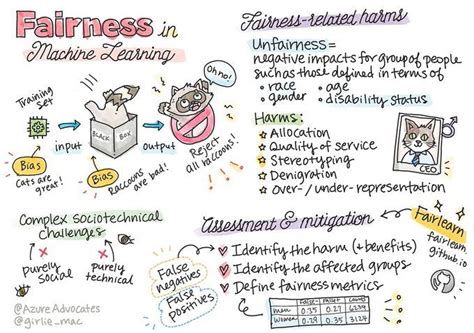 Fairness in
Machine Learning
Training
set
input
BLACK BOX
output
Oh no!
Reject
all raccoons!
Bias
Cats are
great!
Bias
Raccoons are bad!
Fairness-related harms
Unfairness=
negative impacts for group of people
such as those defined in terms of
• race • age
• gender • disability status
Harms:
Allocation
Quality of service
Stereotyping
Denigration
Over-/under-representation
CEO
Complex Sociotechnical
Challenges
Purely
social
Purely
technical
@AzureAdvocates
@girlie_mac
Assessment & mitigation
Identify the harm (+benefits)
Identify the affected groups
Define fairness metrics
False
negatives
False
positives
Fairlearn
fairlearn
github.io
False- False+ counts
Women 0.28 0.35 3124